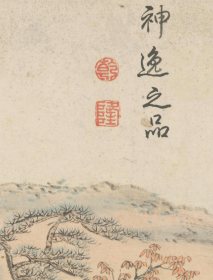 神逸之品